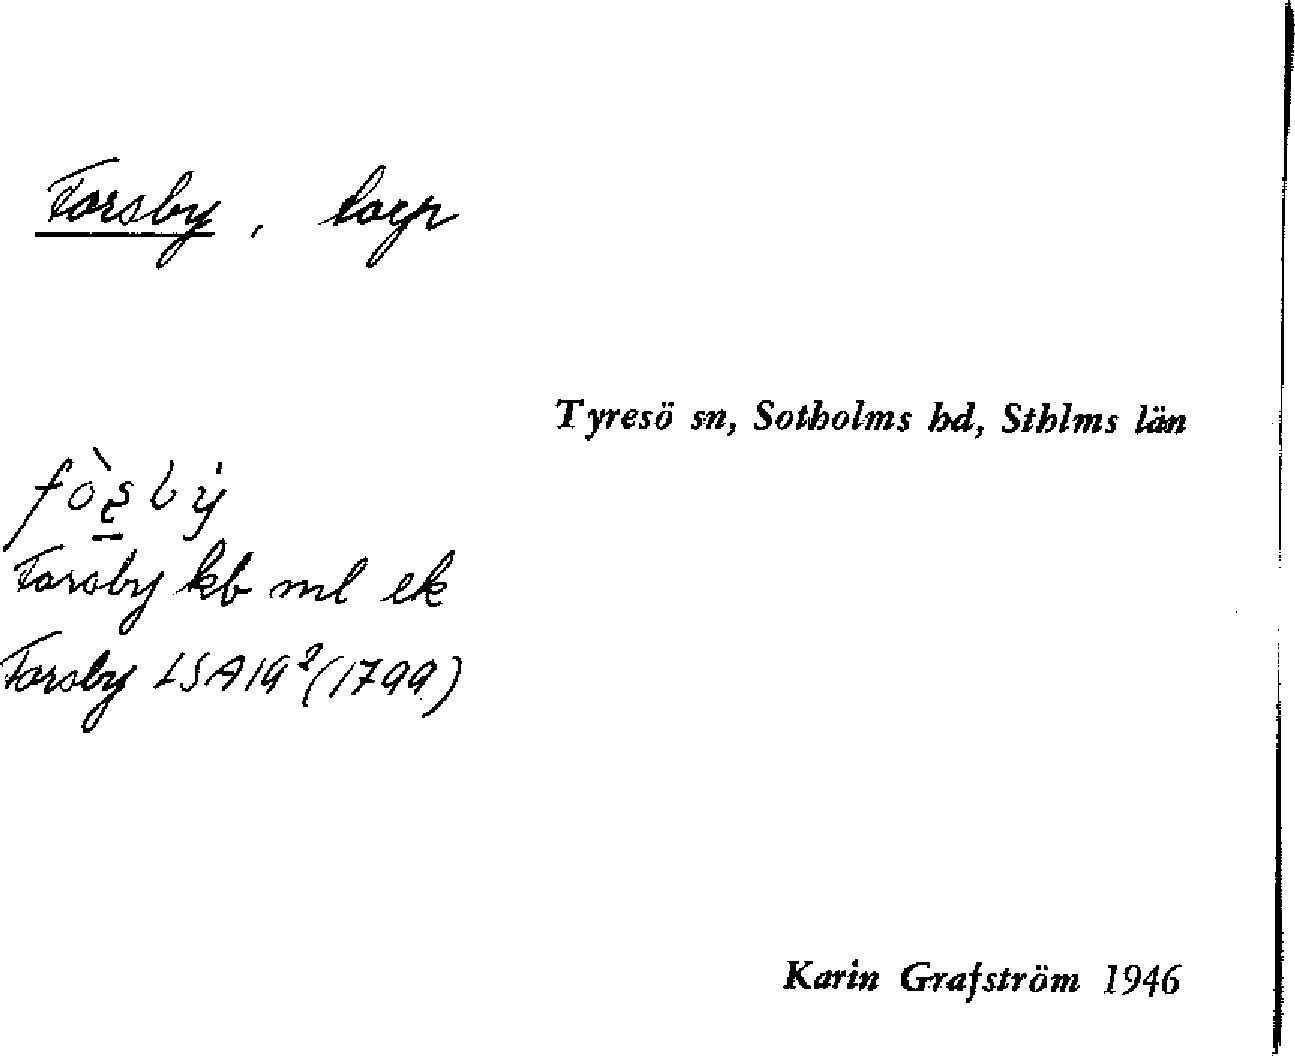 Forsby, torp
Tyresö sn, Sotholms hd, Sthlms län
Forsby kb ml ek
Forsby LSA 19² (1799)
Karin Grafström 1946